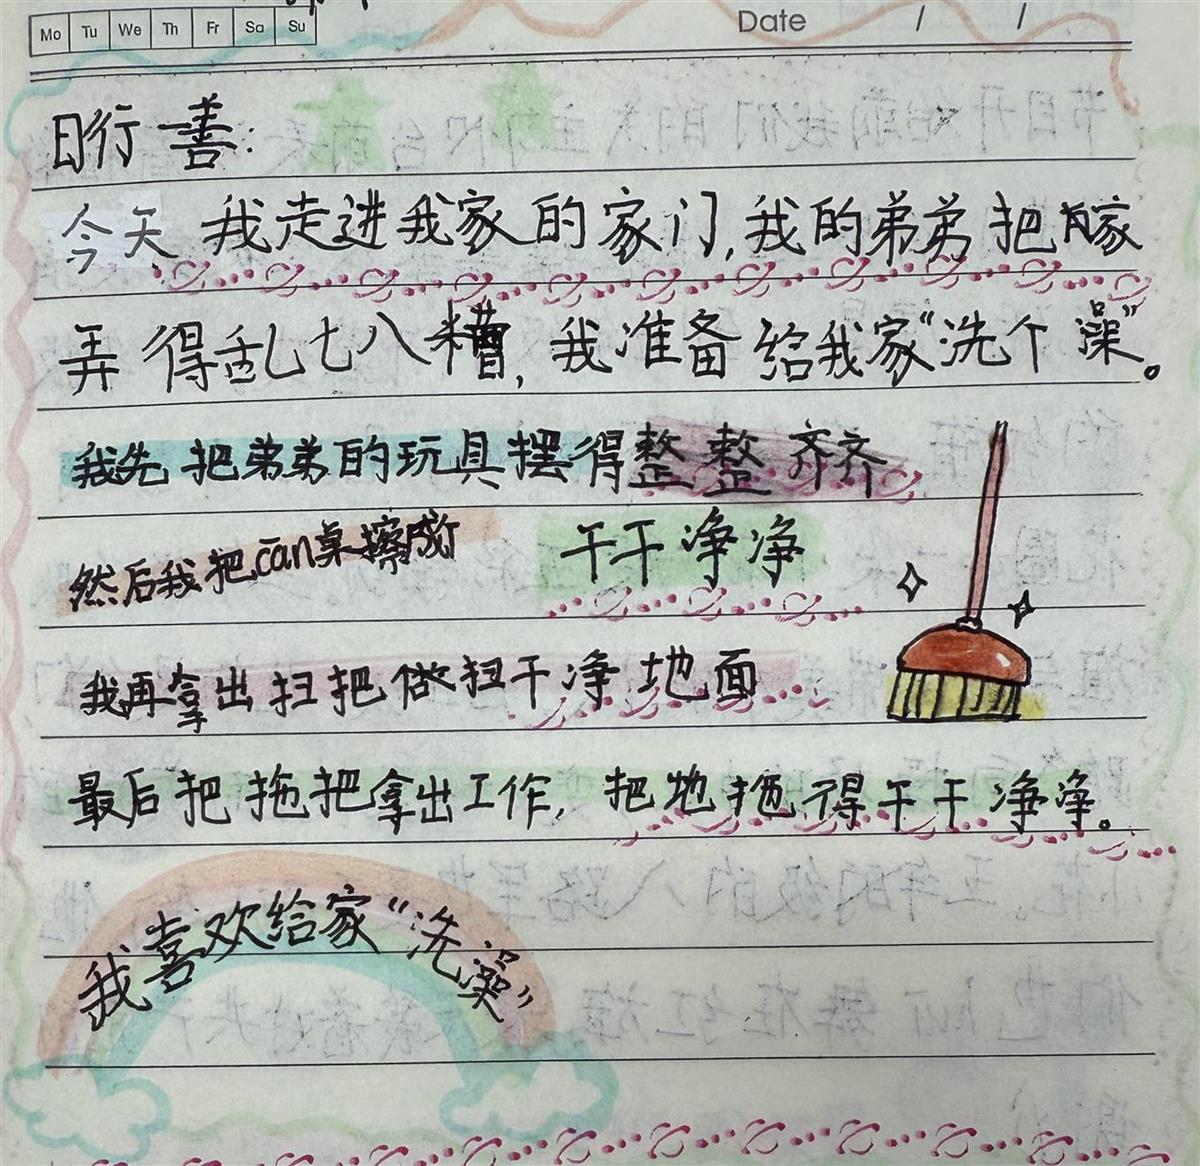 Mo Tu We Th Fr Sa Su Date / /
日行善:
今天我走进我家的家门,我的弟弟把家
弄得乱七八糟,我准备给我家“洗个澡”。
我先把弟弟的玩具摆得整整齐齐
然后我把cān桌擦 干干净净
我再拿出扫把做扫干净地面
最后把拖把拿出工作,把地拖得干干净净。
我喜欢给家“洗澡”